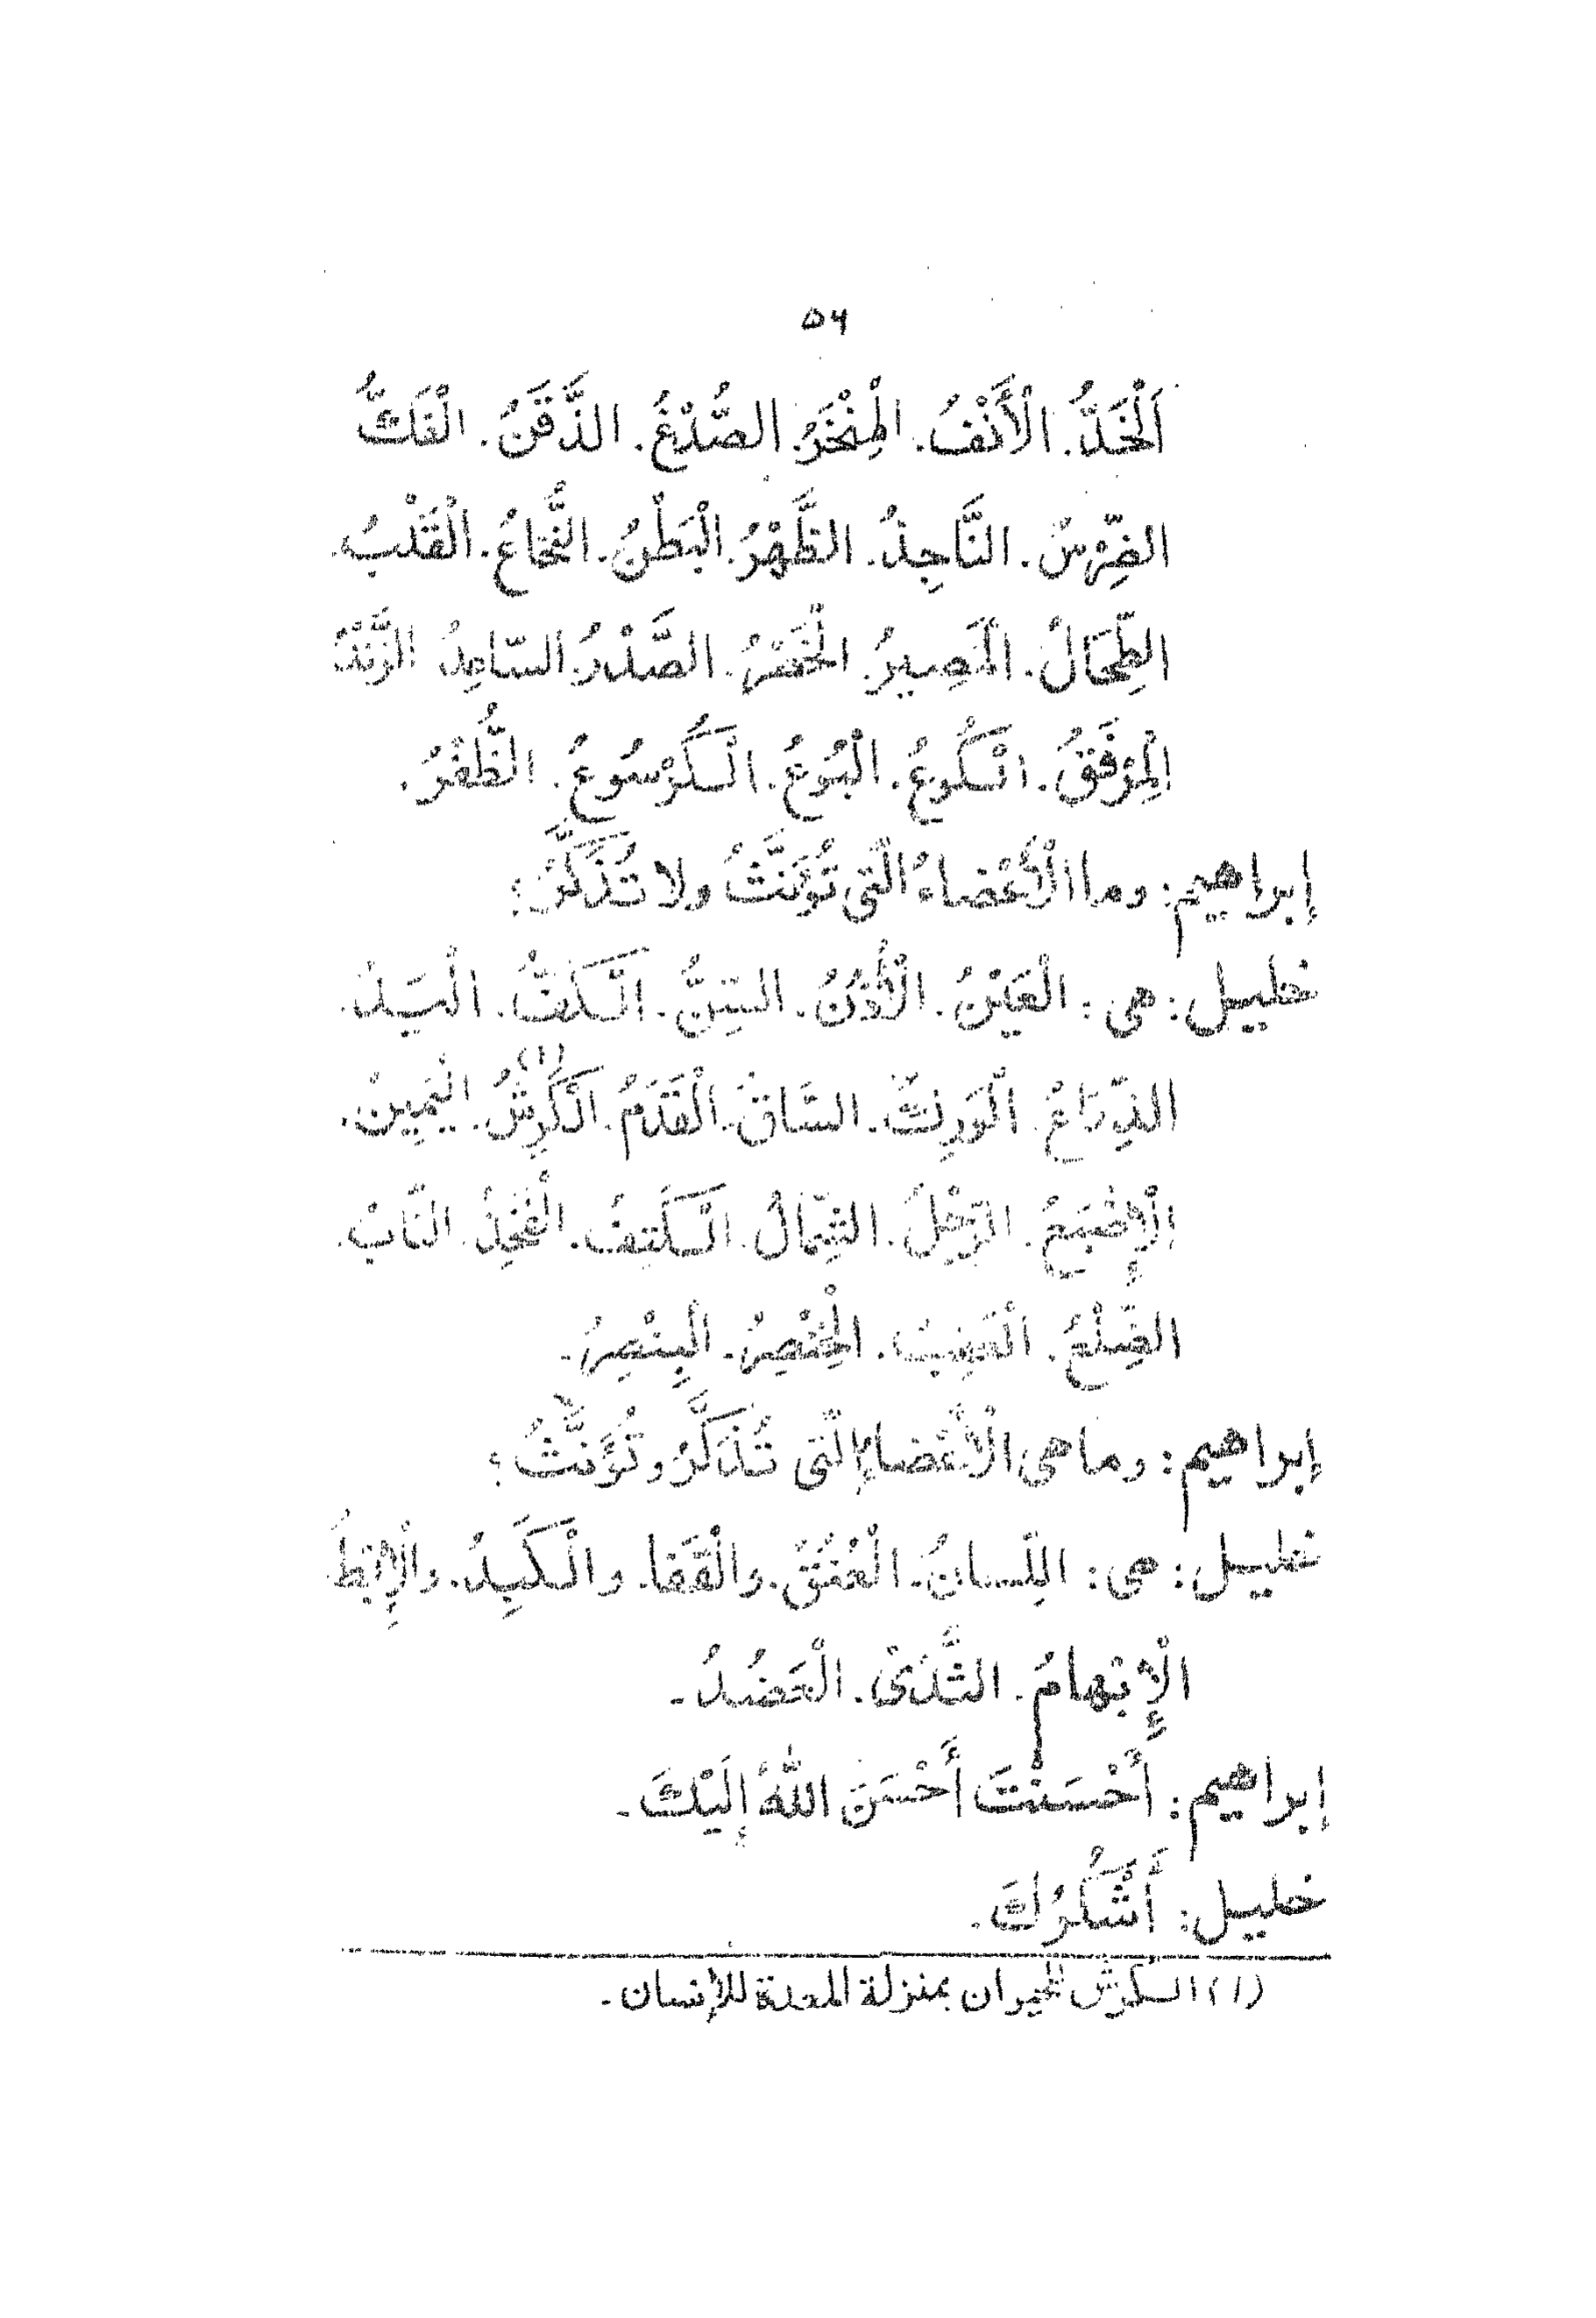 ٥٦
اَلْخَدُّ. الْأَنْفُ. الْمِنْخَرُ. الصُّدْغُ. الذَّقَنُ. الْفَكُّ
الضِّرْسُ. النَّاجِذُ. الظَّهْرُ. الْبَطْنُ. النُّخَاعُ. الْقَلْبُ.
الطِّحَالُ. الْمَصِيرُ. الْخَصْرُ. الصَّدْرُ. السَّاعِدُ الزَّنْدُ
الْمِرْفَقُ. الْكُوعُ. الْبُوعُ. الْكُرْسُوعُ. الظُّفْرُ.
إبراهيم: وما الْأَعْضاءُ الَّتِي تُؤَنَّثُ ولا تُذَكَّرُ؟
خليل: هي: الْعَيْنُ. الْأُذُنُ. السِّنُّ. الْكَفُّ. الْيَدُ.
الذِّرَاعُ. الْوَرِكُ. السَّاقُ. الْقَدَمُ. الْكَرِشُ(١). الْيَمِينُ.
الْإِصْبَعُ. الرِّجْلُ. الشِّمَالُ. الْكَتِفُ. الْفَخِذُ. النَّابُ.
الضِّلْعُ. الْعَقِبُ. الْخِنْصِرُ. الْبِنْصِرُ.
إبراهيم: وما هي الْأَعْضاءُ الَّتِي تُذَكَّرُ وتُؤَنَّثُ؟
خليل: هي: اللِّسانُ. الْعُنُقُ. والْقَفا. والْكَبِدُ. والْإِبْطُ
الْإِبْهامُ. الثَّدْيُ. الْعَضُدُ.
إبراهيم: أَحْسَنْتَ أَحْسَنَ اللَّهُ إِلَيْكَ.
خليل: أَشْكُرُكَ.
(١) الكَرِش للحيوان بمنزلة المعدة للإنسان.